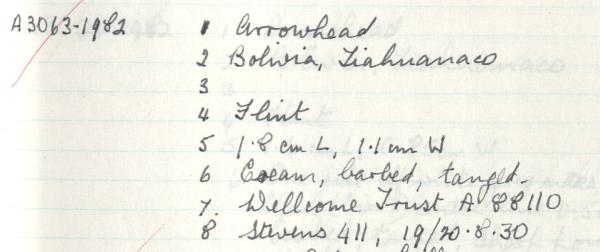 A3063-1982 1 Arrowhead
2 Bolivia, Tiahuanaco
3
4 Flint
5 1.8 cm L, 1.1 cm W
6 Cream, barbed, tanged.
7. Wellcome Trust A 88110
8 Stevens 411, 19/20.8.30